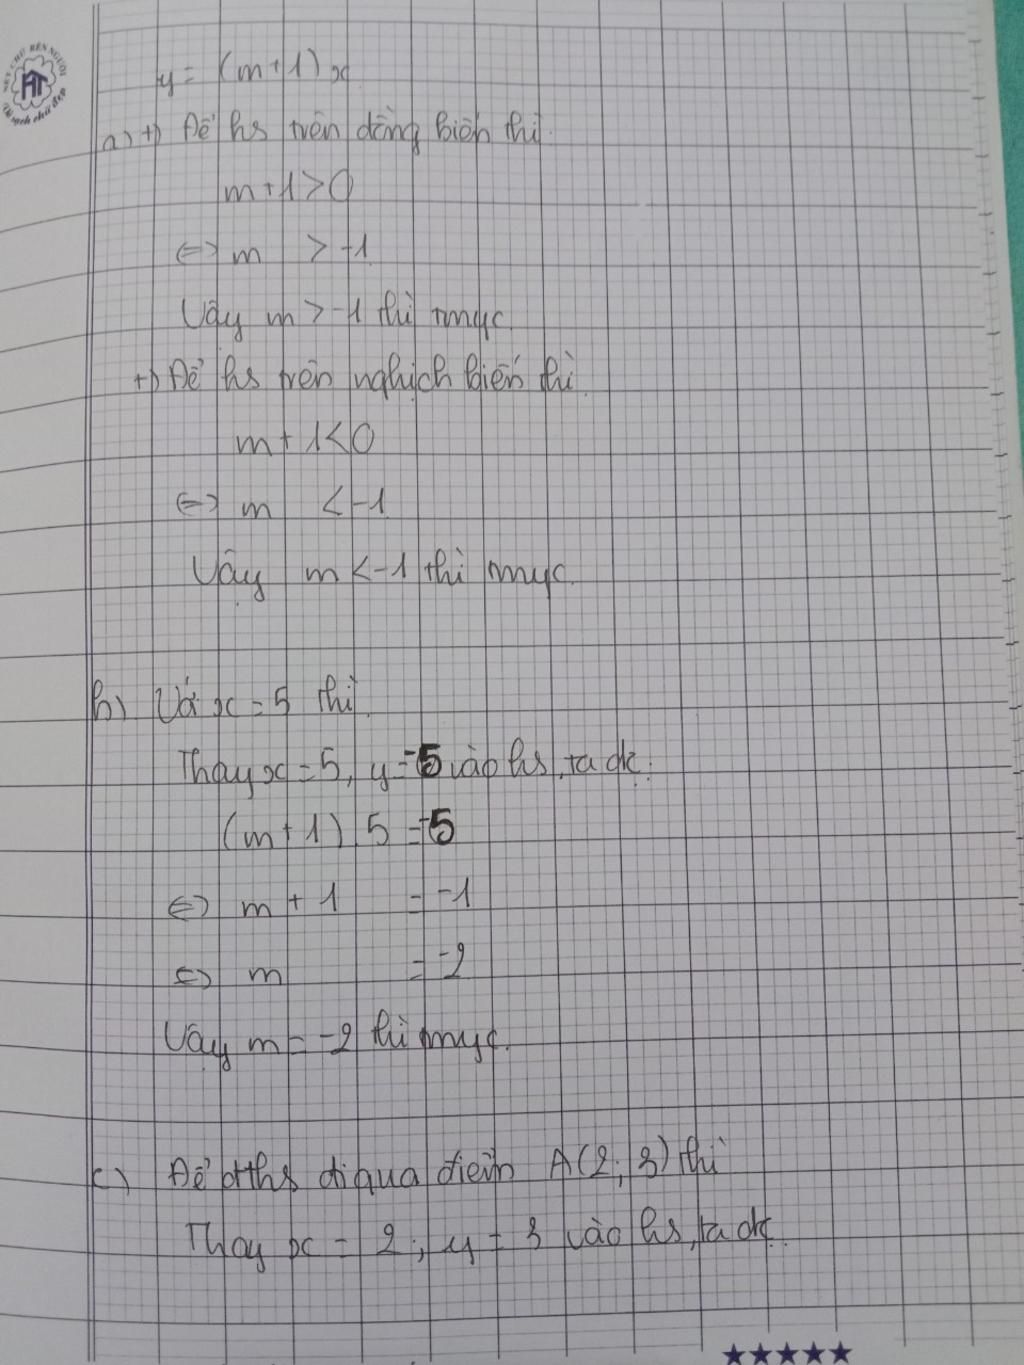 NÉT CHỮ RÈN NGƯỜI
HT
Vở sạch chữ đẹp
y = (m+1)x
a) +) Để hs trên đồng biến thì
m+1>0
⇔ m > -1
Vậy m > -1 thì tmyc
+) Để hs trên nghịch biến thì
m + 1<0
⇔ m < -1
Vậy m < -1 thì tmyc.
b) Với x = 5 thì
Thay x = 5, y = -5 vào hs, ta đc:
(m+1).5 = -5
⇔ m + 1 = -1
⇔ m = -2
Vậy m = -2 thì tmyc.
c) Để đths đi qua điểm A(2; 3) thì
Thay x = 2; y = 3 vào hs, ta đc.
★★★★★